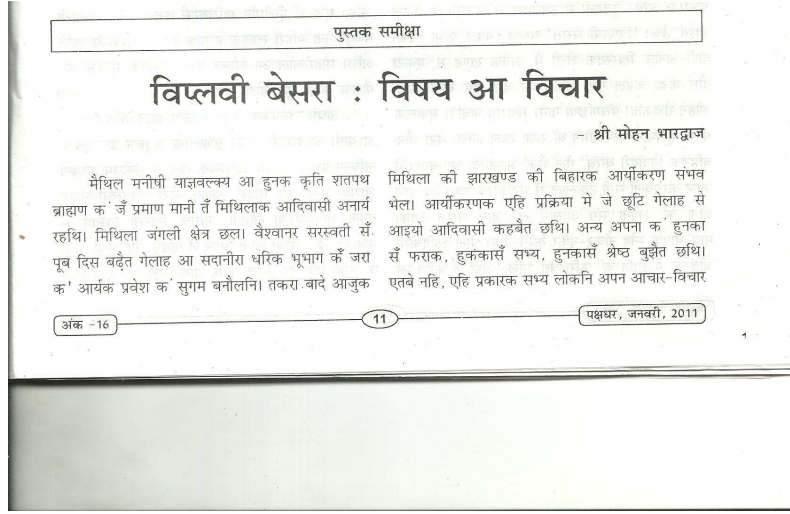 पुस्तक समीक्षा
विप्लवी बेसरा : विषय आ विचार
- श्री मोहन भारद्वाज
मैथिल मनीषी याज्ञवल्क्य आ हुनक कृति शतपथ
ब्राह्मण कॅ जॅ प्रमाण मानी तॅ मिथिलाक आदिवासी अनार्य
रहथि। मिथिला जंगली क्षेत्र छल। वैश्वानर सरस्वती सॅ
पूब दिस बढ़ैत गेलाह आ सदानीरा धरिक भूभाग कॅे जरा
क' आर्यक प्रवेश कॅ सुगम बनौलनि। तकरा बादे आजुक
मिथिला की झारखण्ड की बिहारक आर्यीकरण संभव
भेल। आर्यीकरणक एहि प्रक्रिया मे जे छूटि गेलाह से
आइयो आदिवासी कहबैत छथि। अन्य अपना कॅ हुनका
सॅ फराक, हुनकासॅ सभ्य, हुनकासॅ श्रेष्ठ बुझैत छथि।
एतबे नहि, एहि प्रकारक सभ्य लोकनि अपन आचार-विचार
अंक -16
11
पक्षधर, जनवरी, 2011